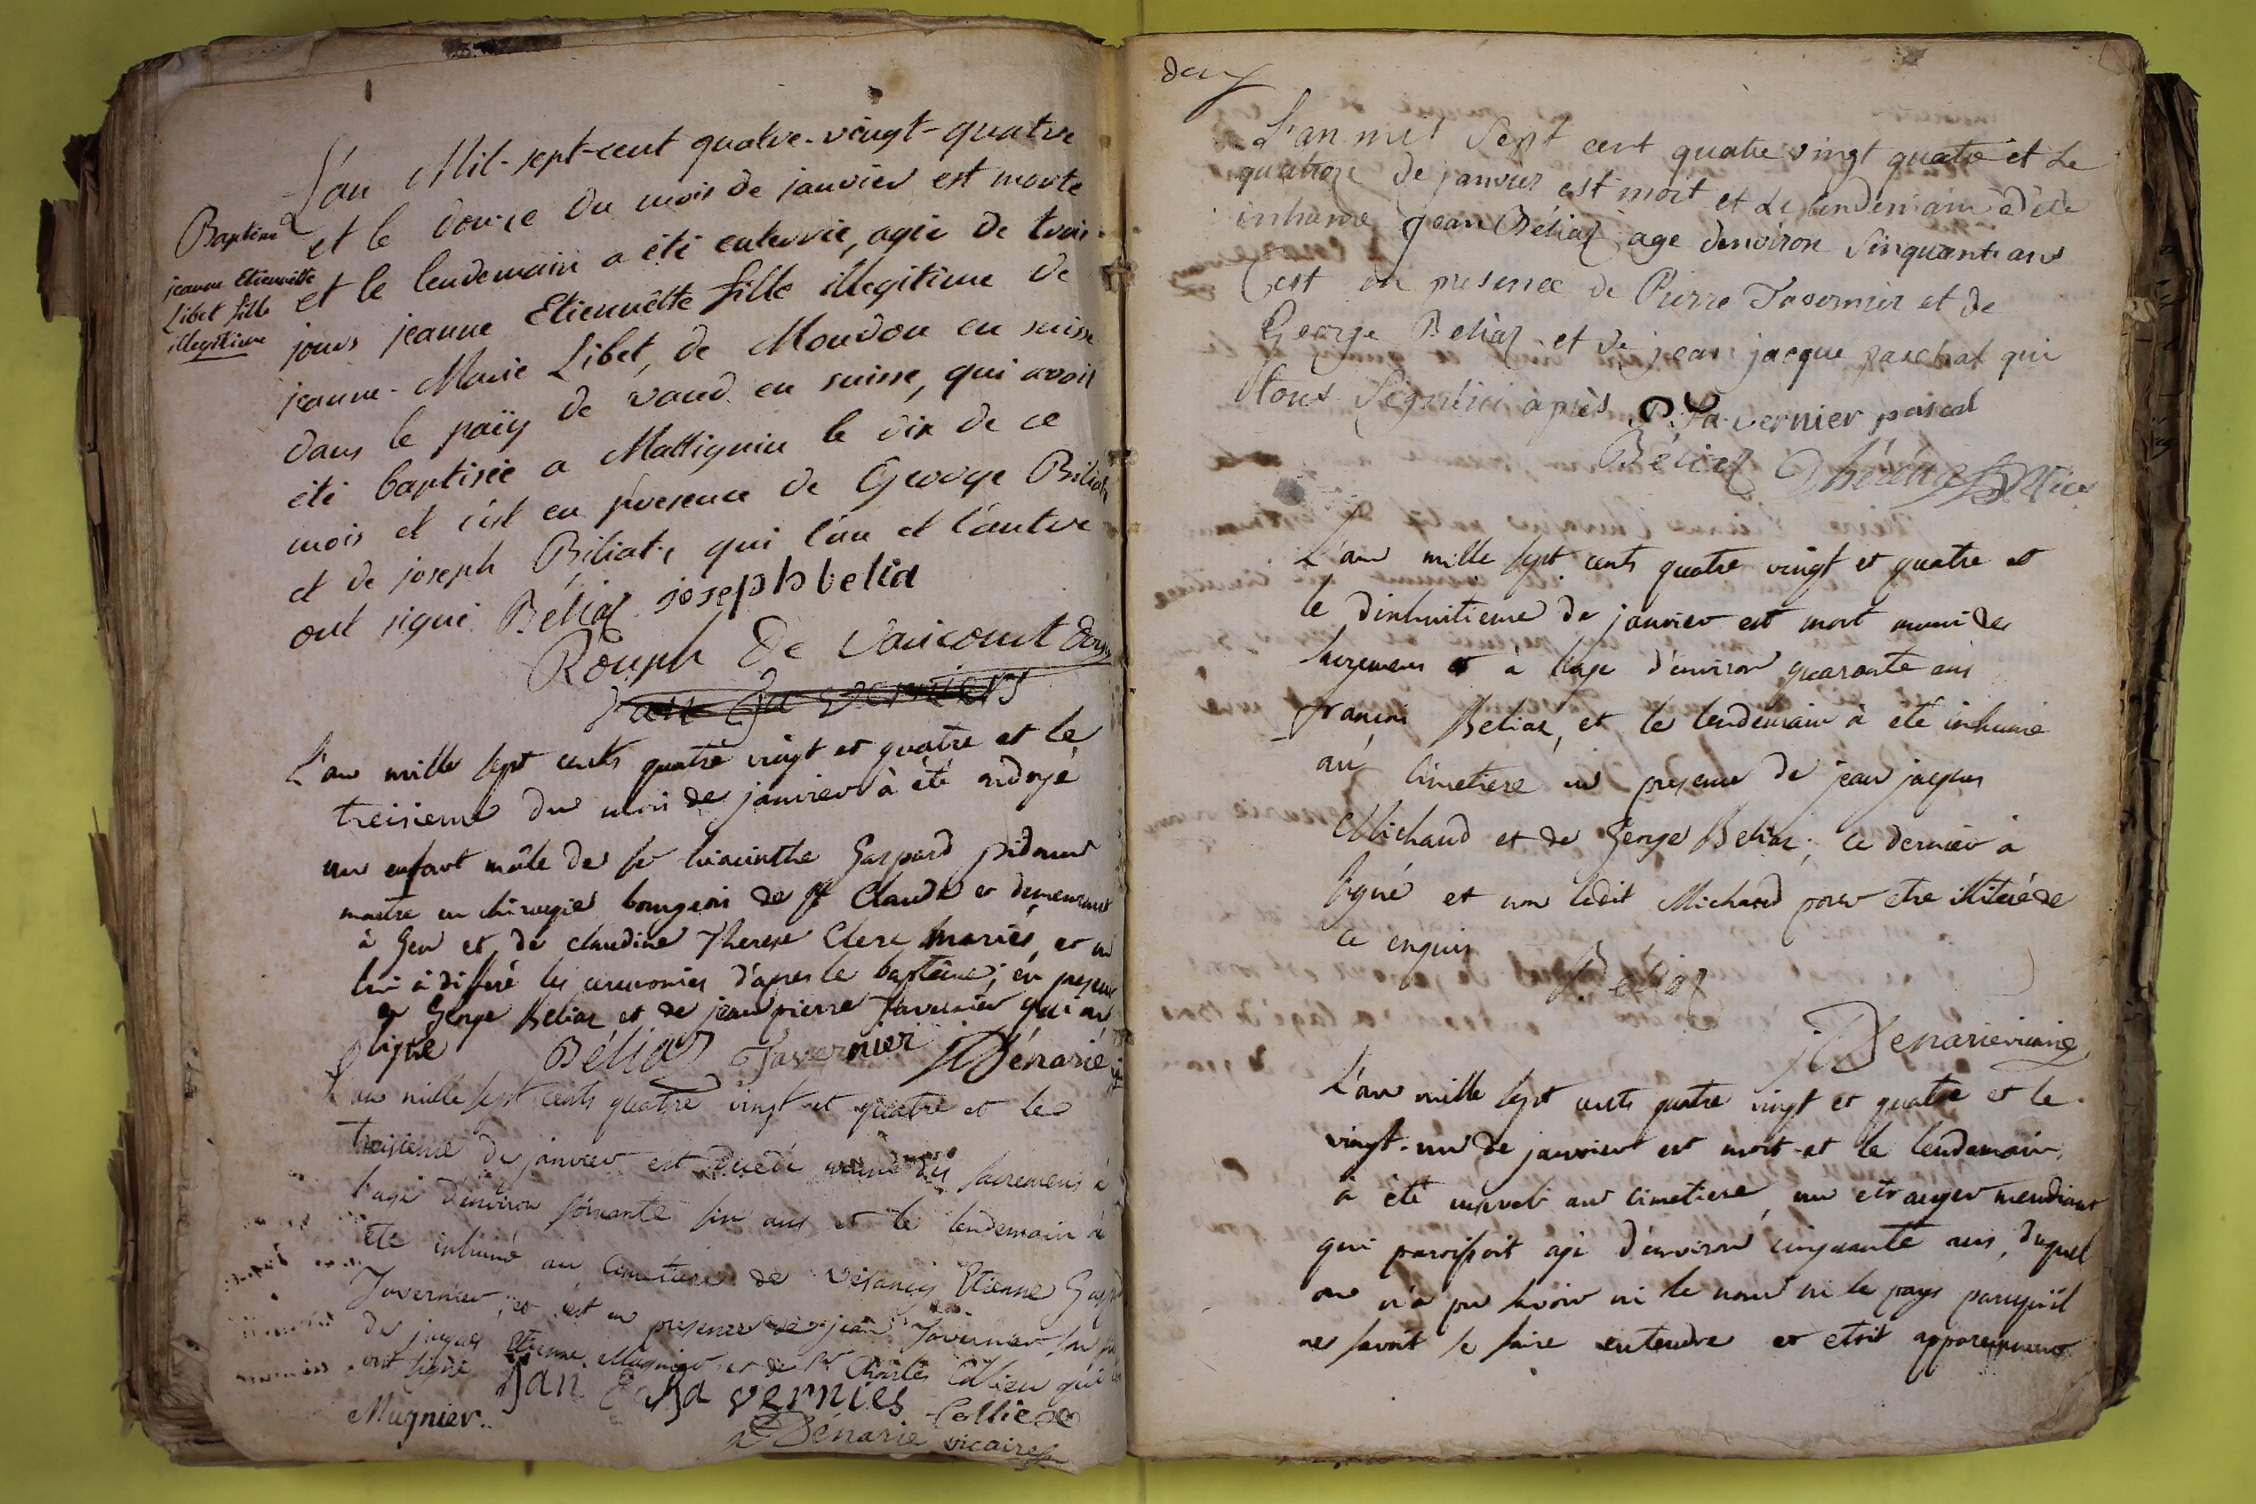 L'an Mil-sept-cent quatre-vingt-quatre
et le douze du mois de janvier est morte
et le lendemain a été enterrée, agée de trois
jours jeanne Etiennêtte fille illegitime de
jeanne-Marie Libet, de Moudon en suisse
dans le païs de vaud en suisse, qui avoit
été baptisée a Mattignin le dix de ce
mois et c'est en presence de George Béliat
et de joseph Béliat, qui l'un et l'autre
ont signé. Béliaz joseph belia
Baptême
jeanne Etiennette
Libet fille
illegitime
Rouph de Varicourt
L'an mille sept cents quatre vingt et quatre et le
treisieme du mois de janvier à été ondoyé
un enfant mâle de sr hiacinthe Gaspard pidoux
maitre en chirurgie bourgeois de St Claude et demeurant
à Gex et de claudine Therese Clerc mariés, et on
lui à différé les ceremonies d'apres le baptême; en presence
de George Beliaz et de jean pierre Tavernier qui on
signe Béliaz Tavernier Dénarié
L'an mille sept cents quatre vingt et quatre et le
treisieme de janvier est décédé muni des sacremens à
l'age d'environ soixante six ans et le lendemain à
ete inhumé au cimetiere de Vésancy Etienne
Tavernier, et c'est en presence de jean Tavernier son
de jacques Etienne Mugnier et de sr Charles Collieu qui
ont signé Jan Ta vernies
Mugnier. Dénarié vicaire
deux
L'an mil sept cent quatre vingt quatre et le
quatorze de janvier est mort et le lendemain a été
inhumé jean Béliaz age denviron Sinquant ans
Cest en presence de Pierre Tavernier et de
George Beliaz et de jean jacque paschal qui
tous signé ici après P. Tavernier pascal
Béliaz
L'an mille sept cents quatre vingt et quatre et
le dixhuitieme de janvier est mort muni des
sacremens et à l'age d'environ quarante ans
françois Beliaz, et le lendemain à eté inhumé
au cimetiere en presence de jean jacques
Michaud et de George Beliaz; ce dernier à
signé et non ledit Michaud pour etre illitéré de
ce enquis
Beliaz
Denarié vicaire
L'an mille sept cents quatre vingt et quatre et le
vingt-un de janvier est mort et le lendemain
à été enseveli au cimetiere, un etranger mendiant
qui paroissoit agé d'environ cinquante ans, duquel
on n'a pu savoir ni le nom ni le pays parcequ'il
ne savoit se faire entendre et etoit apparemment